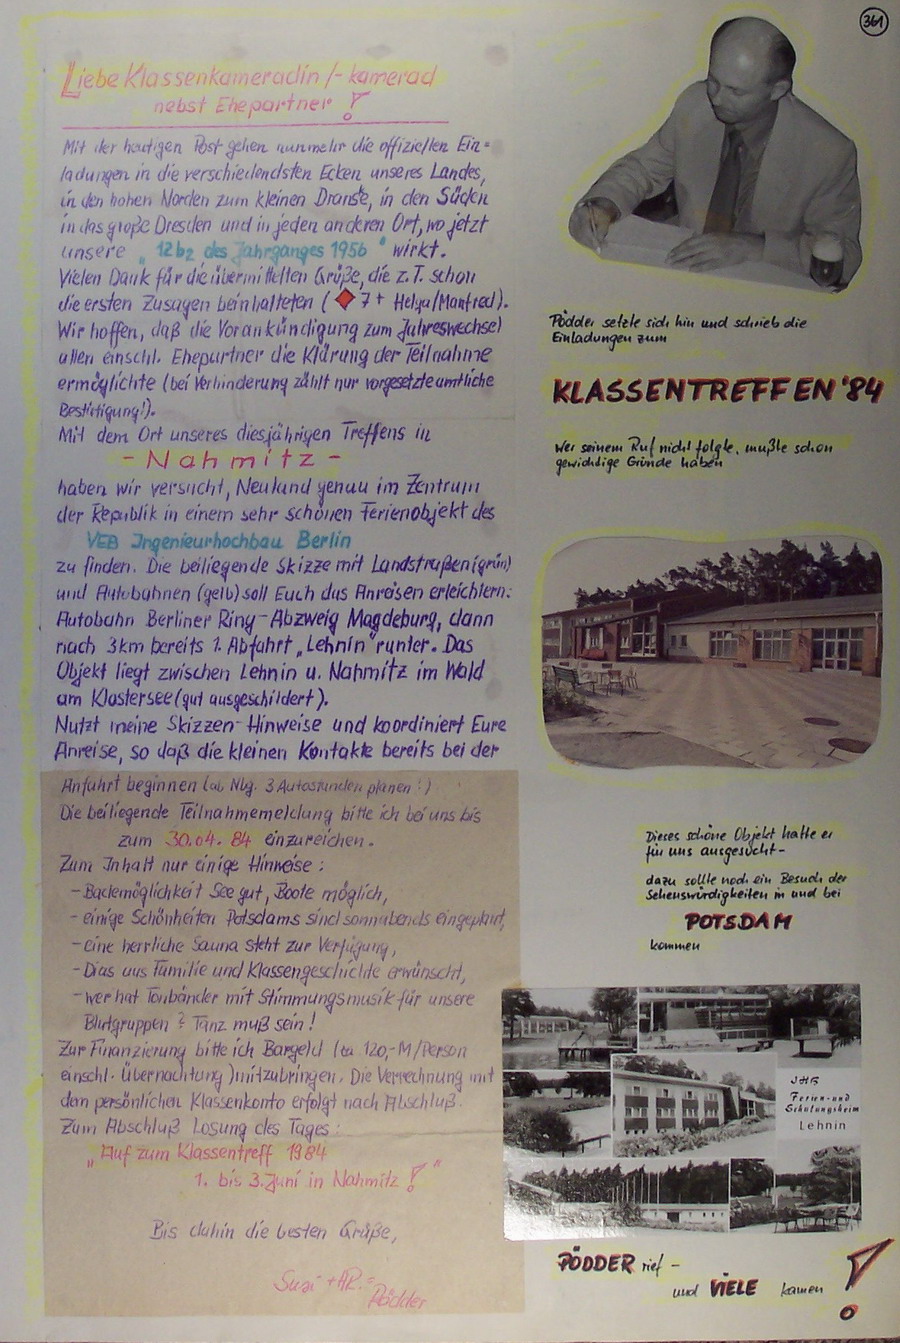 361
Liebe Klassenkameradin /- kamerad
nebst Ehepartner !
Mit der heutigen Post gehen nunmehr die offiziellen Ein=
ladungen in die verschiedendsten Ecken unseres Landes,
in den hohen Norden zum kleinen Dranse, in den Süden
in das große Dresden und in jeden anderen Ort, wo jetzt
unsere "12b2 des Jahrganges 1956" wirkt.
Vielen Dank für die übermittelten Grüße, die z.T. schon
die ersten Zusagen beinhalteten ( 7 + Helga/Manfred).
Wir hoffen, daß die Vorankündigung zum Jahreswechsel
allen einschl. Ehepartner die Klärung der Teilnahme
ermöglichte (bei Verhinderung zählt nur vorgesetzte amtliche
Bestätigung!).
Mit dem Ort unseres diesjährigen Treffens in
- Nahmitz -
haben wir versucht, Neuland genau im Zentrum
der Republik in einem sehr schönen Ferienobjekt des
VEB Ingenieurhochbau Berlin
zu finden. Die beiliegende Skizze mit Landstraßen (grün)
und Autobahnen (gelb) soll Euch das Anreisen erleichtern:
Autobahn Berliner Ring - Abzweig Magdeburg, dann
nach 3km bereits 1. Abfahrt „Lehnin" runter. Das
Objekt liegt zwischen Lehnin u. Nahmitz im Wald
am Klostersee (gut ausgeschildert).
Nutzt meine Skizzen-Hinweise und koordiniert Eure
Anreise, so daß die kleinen Kontakte bereits bei der
Anfahrt beginnen (ab Nbg. 3 Autostunden planen!)
Die beiliegende Teilnahmemeldung bitte ich bei uns bis
zum 30.04.84 einzureichen.
Zum Inhalt nur einige Hinweise:
- Bademöglichkeit See gut, Boote möglich,
- einige Schönheiten Potsdams sind sonnabends eingeplant,
- eine herrliche Sauna steht zur Verfügung,
- Dias aus Familie und Klassengeschichte erwünscht,
- wer hat Tonbänder mit Stimmungsmusik für unsere
Blutgruppen? Tanz muß sein!
Zur Finanzierung bitte ich Bargeld (ca. 120,-M/Person
einschl. Übernachtung) mitzubringen. Die Verrechnung mit
dem persönlichen Klassenkonto erfolgt nach Abschluß.
Zum Abschluß Losung des Tages:
„Auf zum Klassentreff 1984
1. bis 3. Juni in Nahmitz !"
Bis dahin die besten Grüße,
Pödder
Pödder setzte sich hin und schrieb die
Einladungen zum
KLASSENTREFFEN '84
Wer seinem Ruf nicht folgte, mußte schon
gewichtige Gründe haben
Dieses schöne Objekt hatte er
für uns ausgesucht -
dazu sollte noch ein Besuch der
Sehenswürdigkeiten in und bei
POTSDAM
kommen
JHB
Ferien- und
Schulungsheim
Lehnin
PÖDDER rief -
und VIELE kamen !